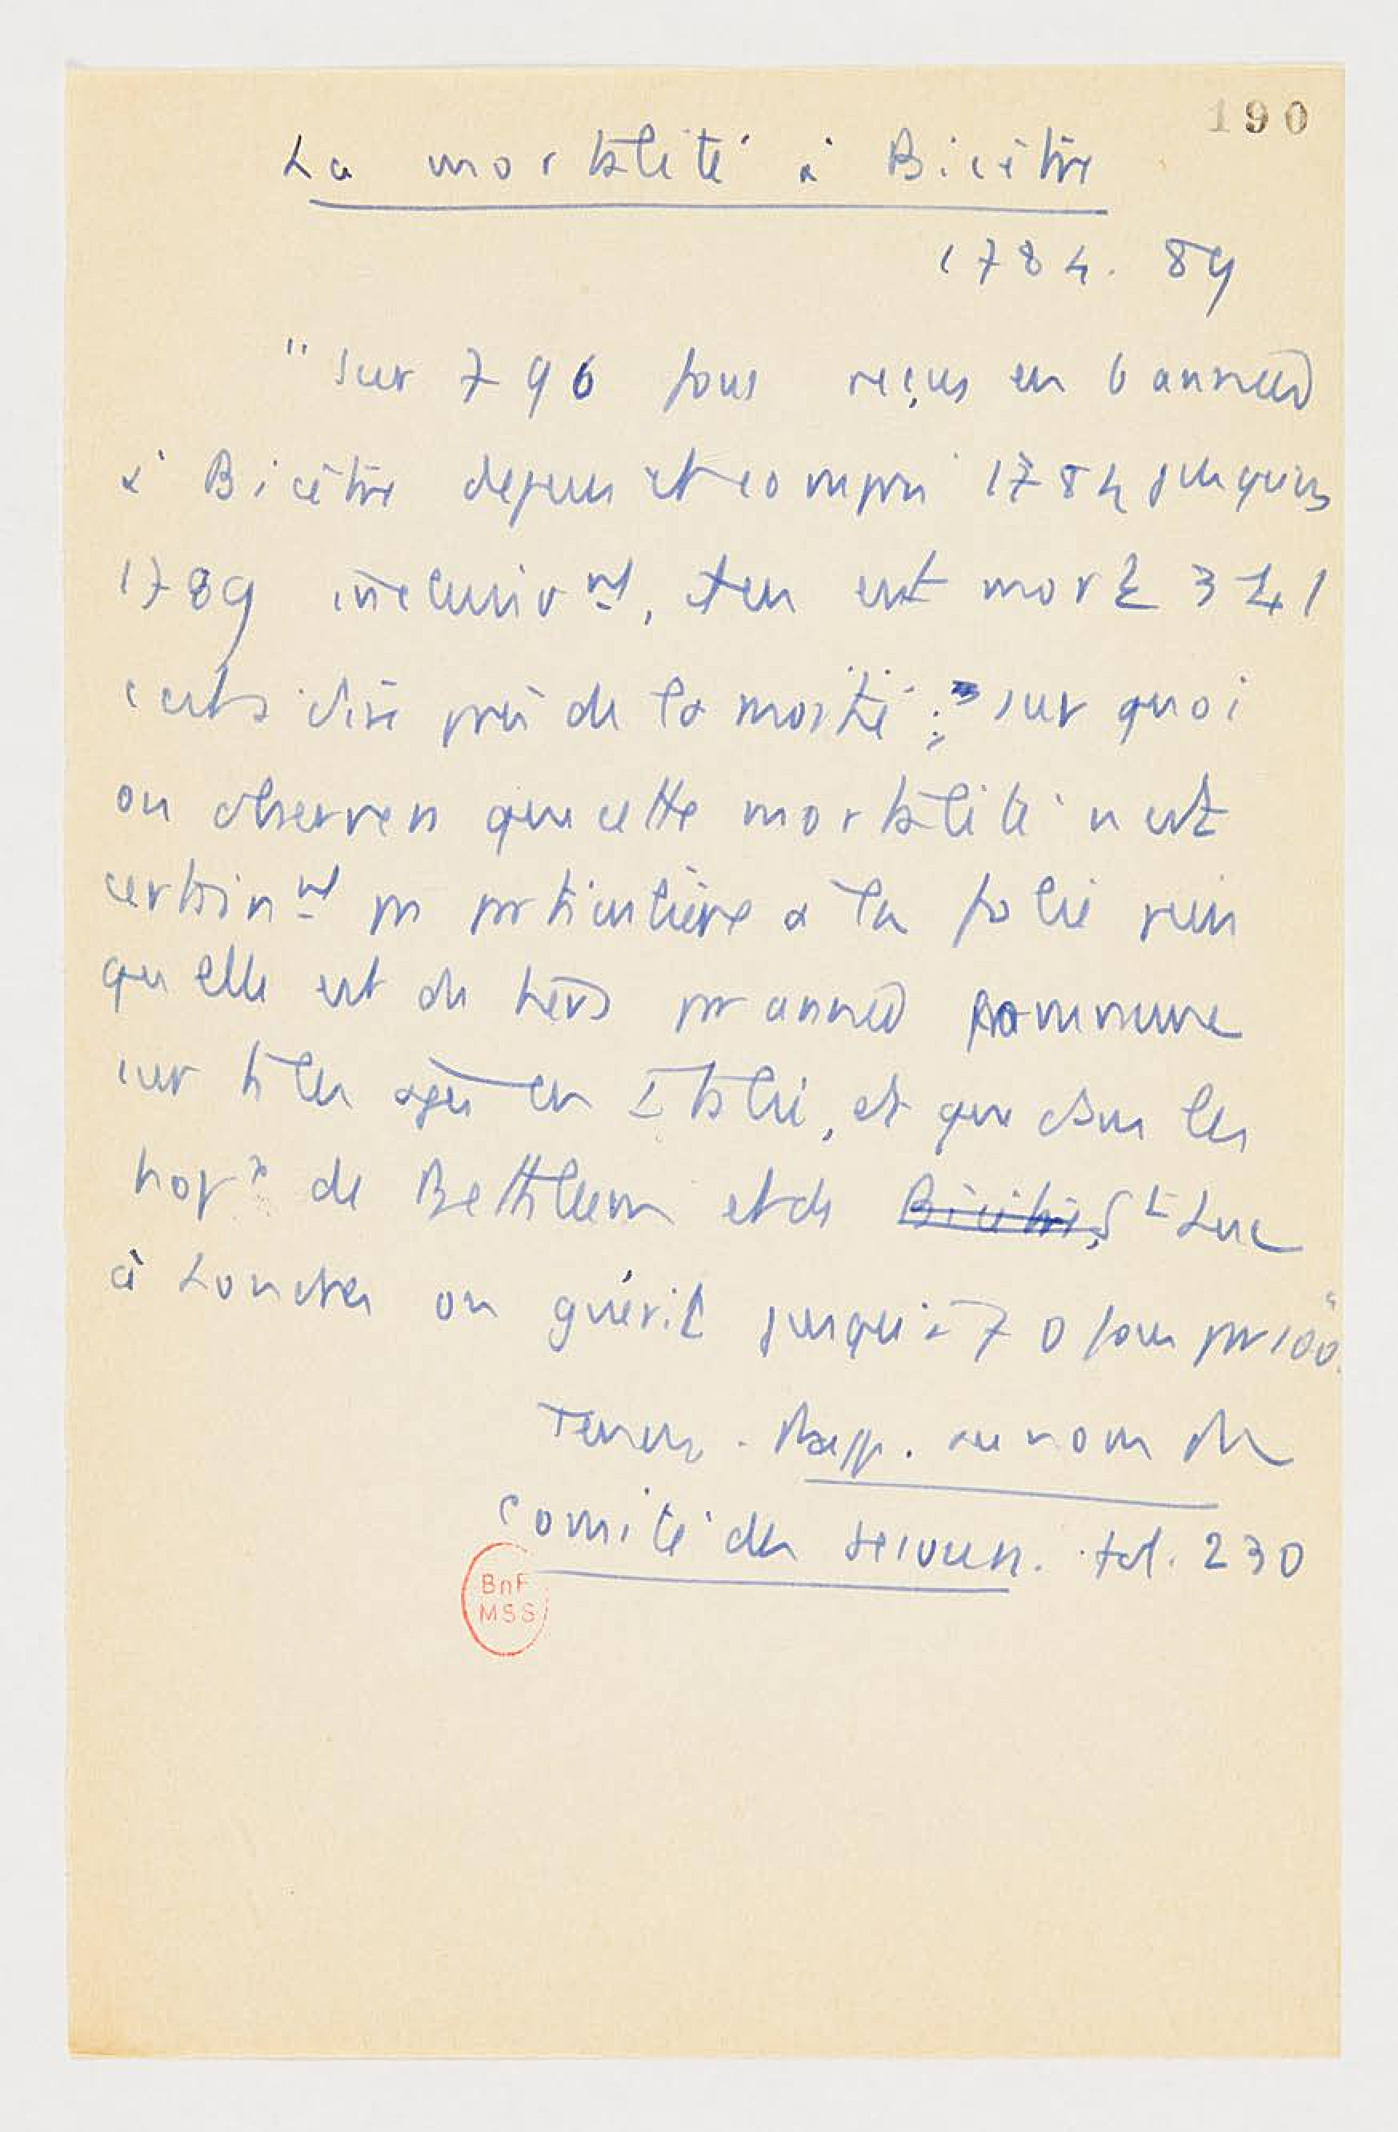 190
La mortalité à Bicêtre
1784. 89
"Sur 796 fous reçus en 6 années
à Bicêtre depuis et compris 1784 jusqu'en
1789 inclusivnt, il en est mort 341
c'est à dire près de la moitié ; sur quoi
on observera que cette mortalité n'est
certainnt pas particulière à la folie puis
qu'elle est du tiers par année commune
sur tous les âgés en Italie, et que dans les
hopx de Bethleem et de Bicêtre, St Luc
à Londres on guérit jusqu'à 70 fous par 100."
Tenon. Rapp. au nom du
comité des secours. fol. 230
BnF
MSS